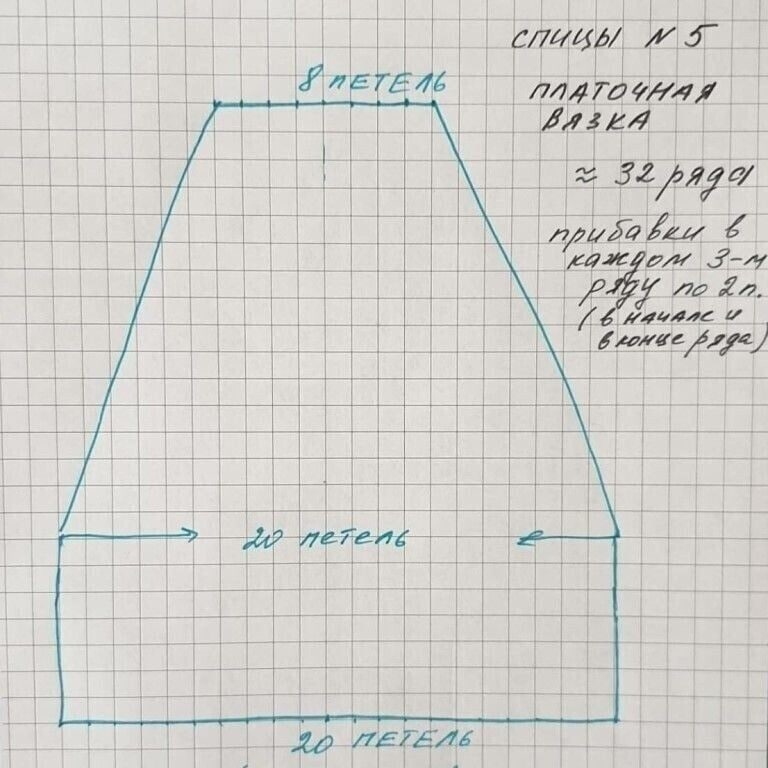 СПИЦЫ N 5
8 ПЕТЕЛЬ
ПЛАТОЧНАЯ
ВЯЗКА
≈ 32 ряда
прибавки в
каждом 3-м
ряду по 2п.
(в начале и
в конце ряда)
20 петель
20 ПЕТЕЛЬ